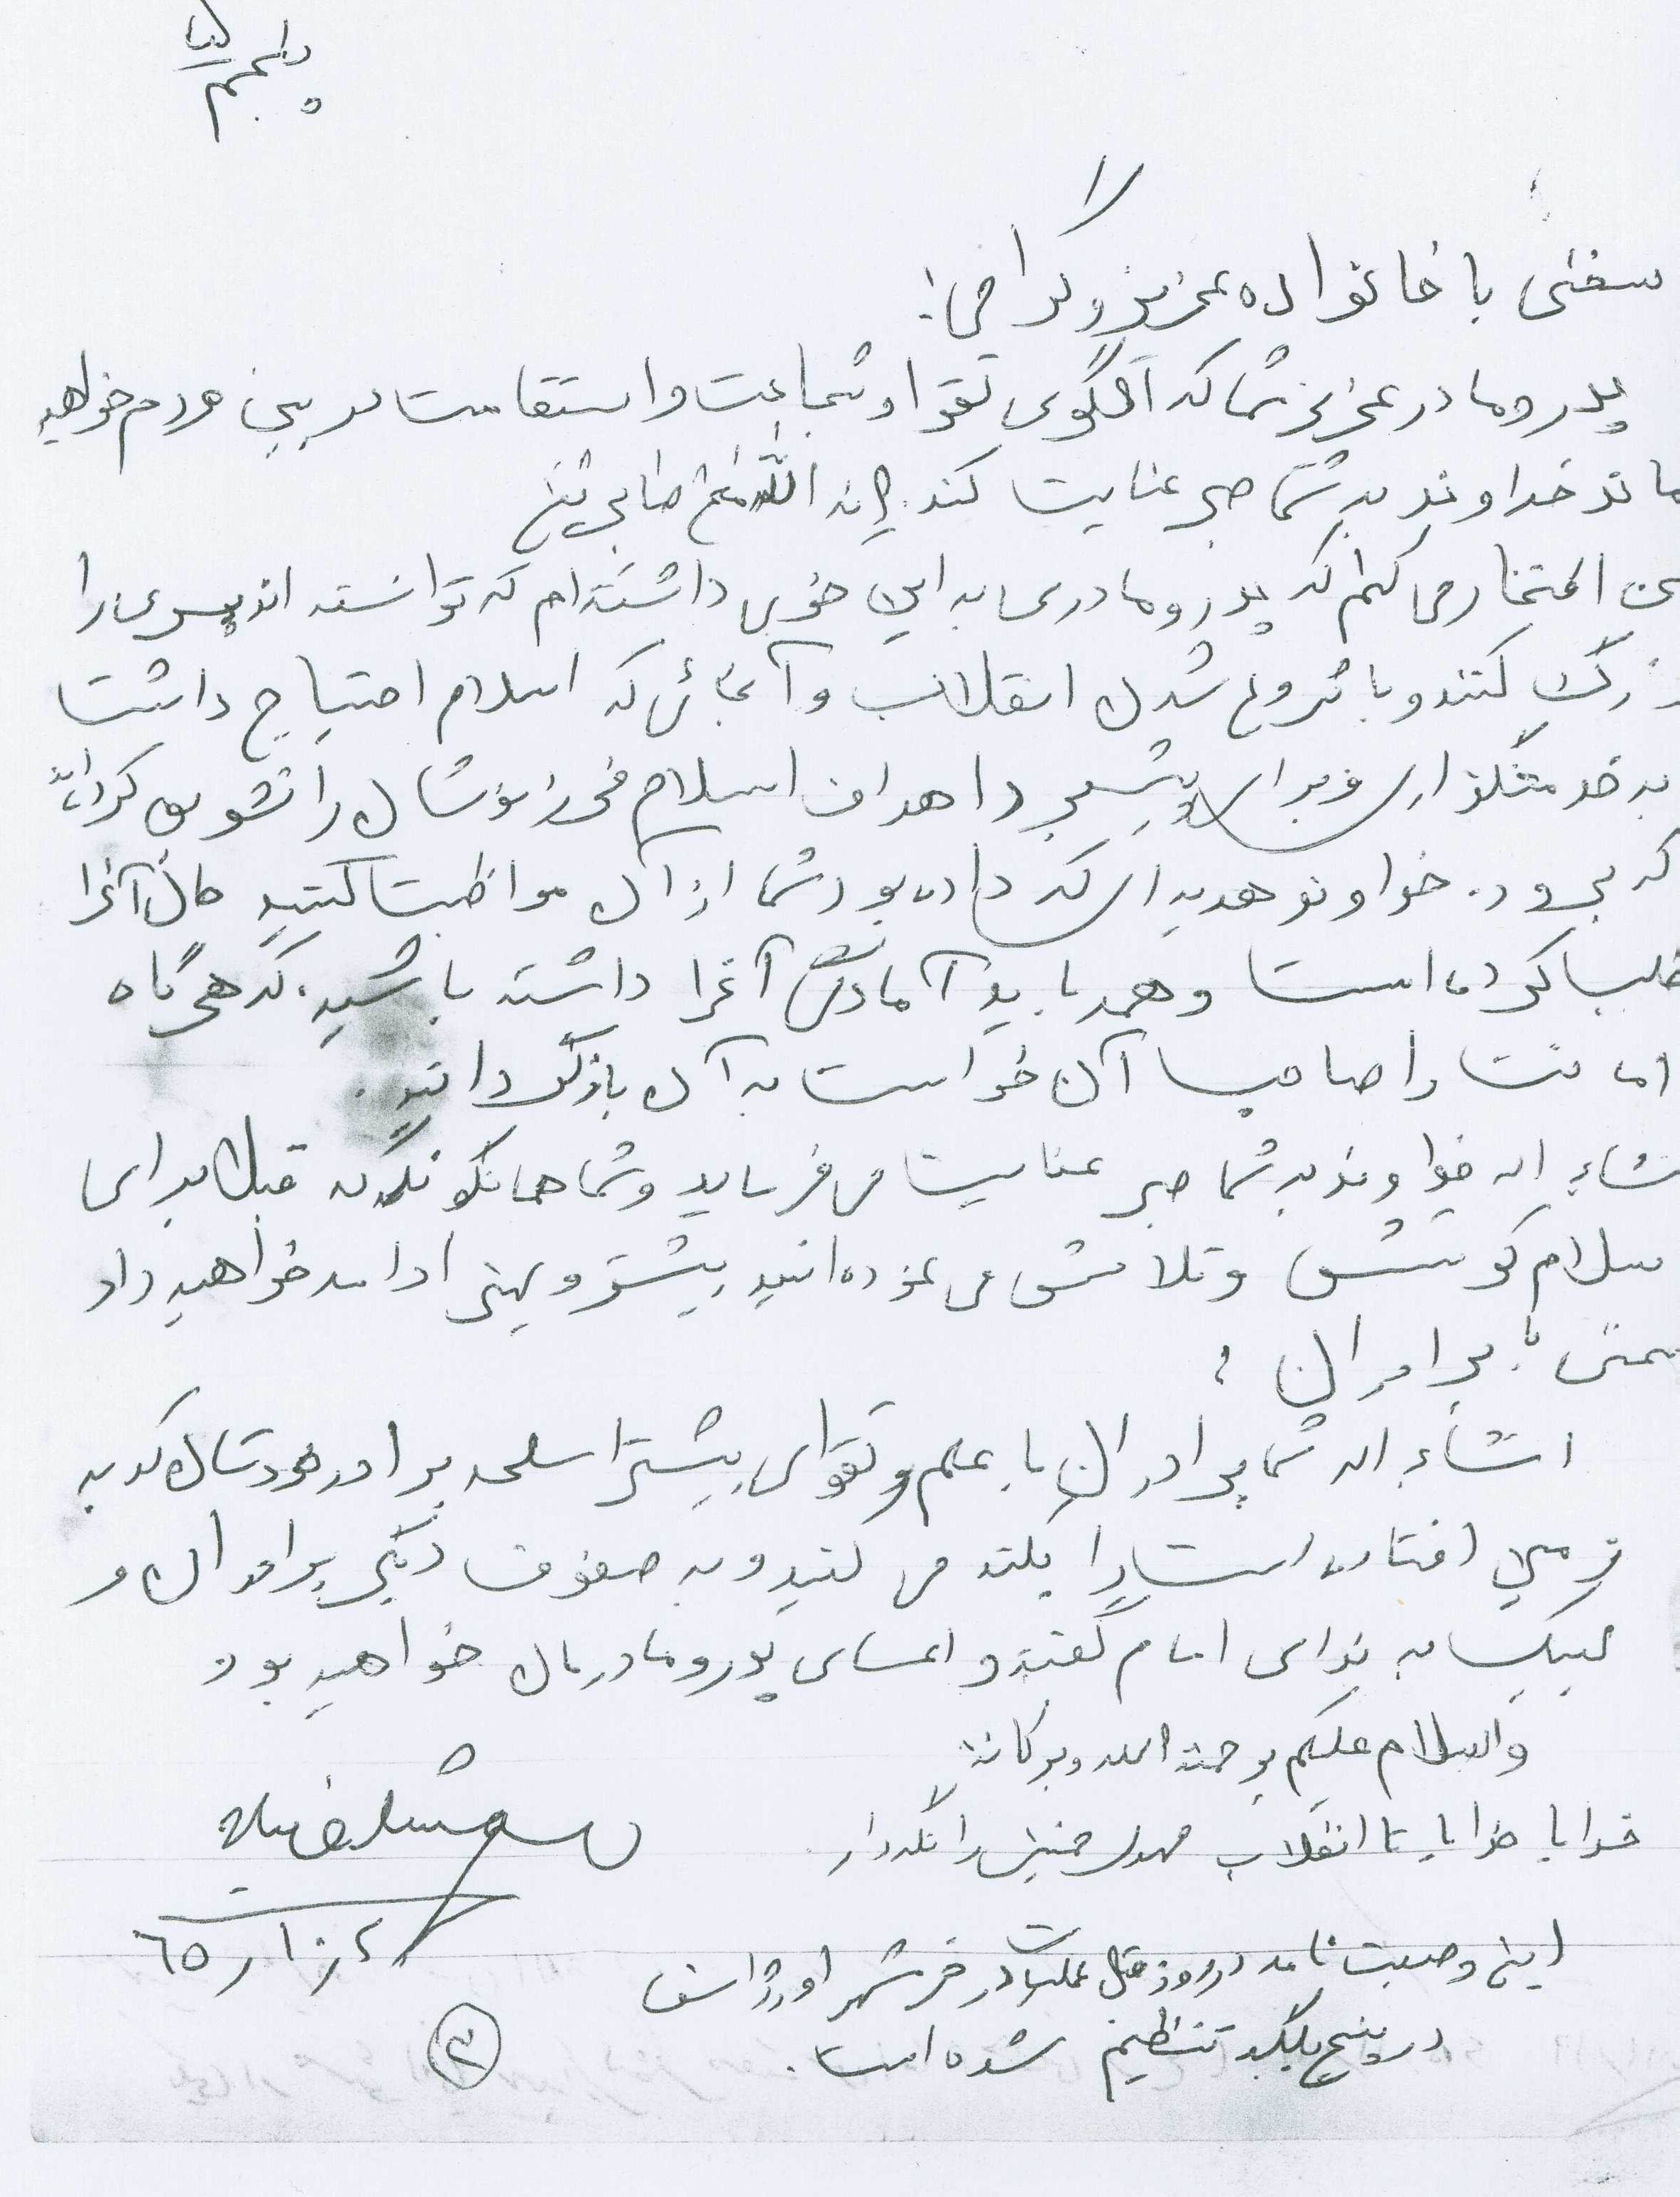 پنجم
سخنی با خانواده عزیز و گرامی:
پدر و مادر عزیز شما که الگوی تقوا و شجاعت و استقامت در بین مردم خواهید
ماند خداوند به شما صبر عنایت کند. ان الله مع الصابرین
من افتخار می کنم که پدر و مادری به این خوبی داشته‌ام که توانسته اند پسری را
بزرگ کنند و با شروع شدن انقلاب و آنجائی که اسلام احتیاج داشت
به خدمتگذاری و برای پیشبرد اهداف اسلام فرزندشان را تشویق کرده‌اند
که برود. خداوند هدیه ای که داده بود شما از آن مواظبت کنید حال آنرا
طلب کرده است و همه باید آمادگی آنرا داشته باشید. که هر گاه
امانت را صاحب آن خواست به آن بازگردانید.
انشاء اله خداوند به شما صبر عنایت می فرماید و شما همانگونه که قبلا برای
اسلام کوشش و تلاش می نموده‌اید بیشتر و بهتر ادامه خواهید داد
سخنی با برادران:
انشاء اله شما برادران با علم و تقوای بیشتر اسلحه برادر خودتان که به
زمین افتاده است را بلند می کنید و به صفوف دیگر برادران و
لبیک به ندای امام گفته و عصای پدر و مادرمان خواهید بود
والسلام علیکم و رحمة الله و برکاته
خدایا خدایا تا انقلاب مهدی خمینی را نگهدار
این وصیت نامه در روز قبل عملیات در خرمشهر اورژانس
در پنج برگ تنظیم شده است.
۶۵/۱۰/۴
۲